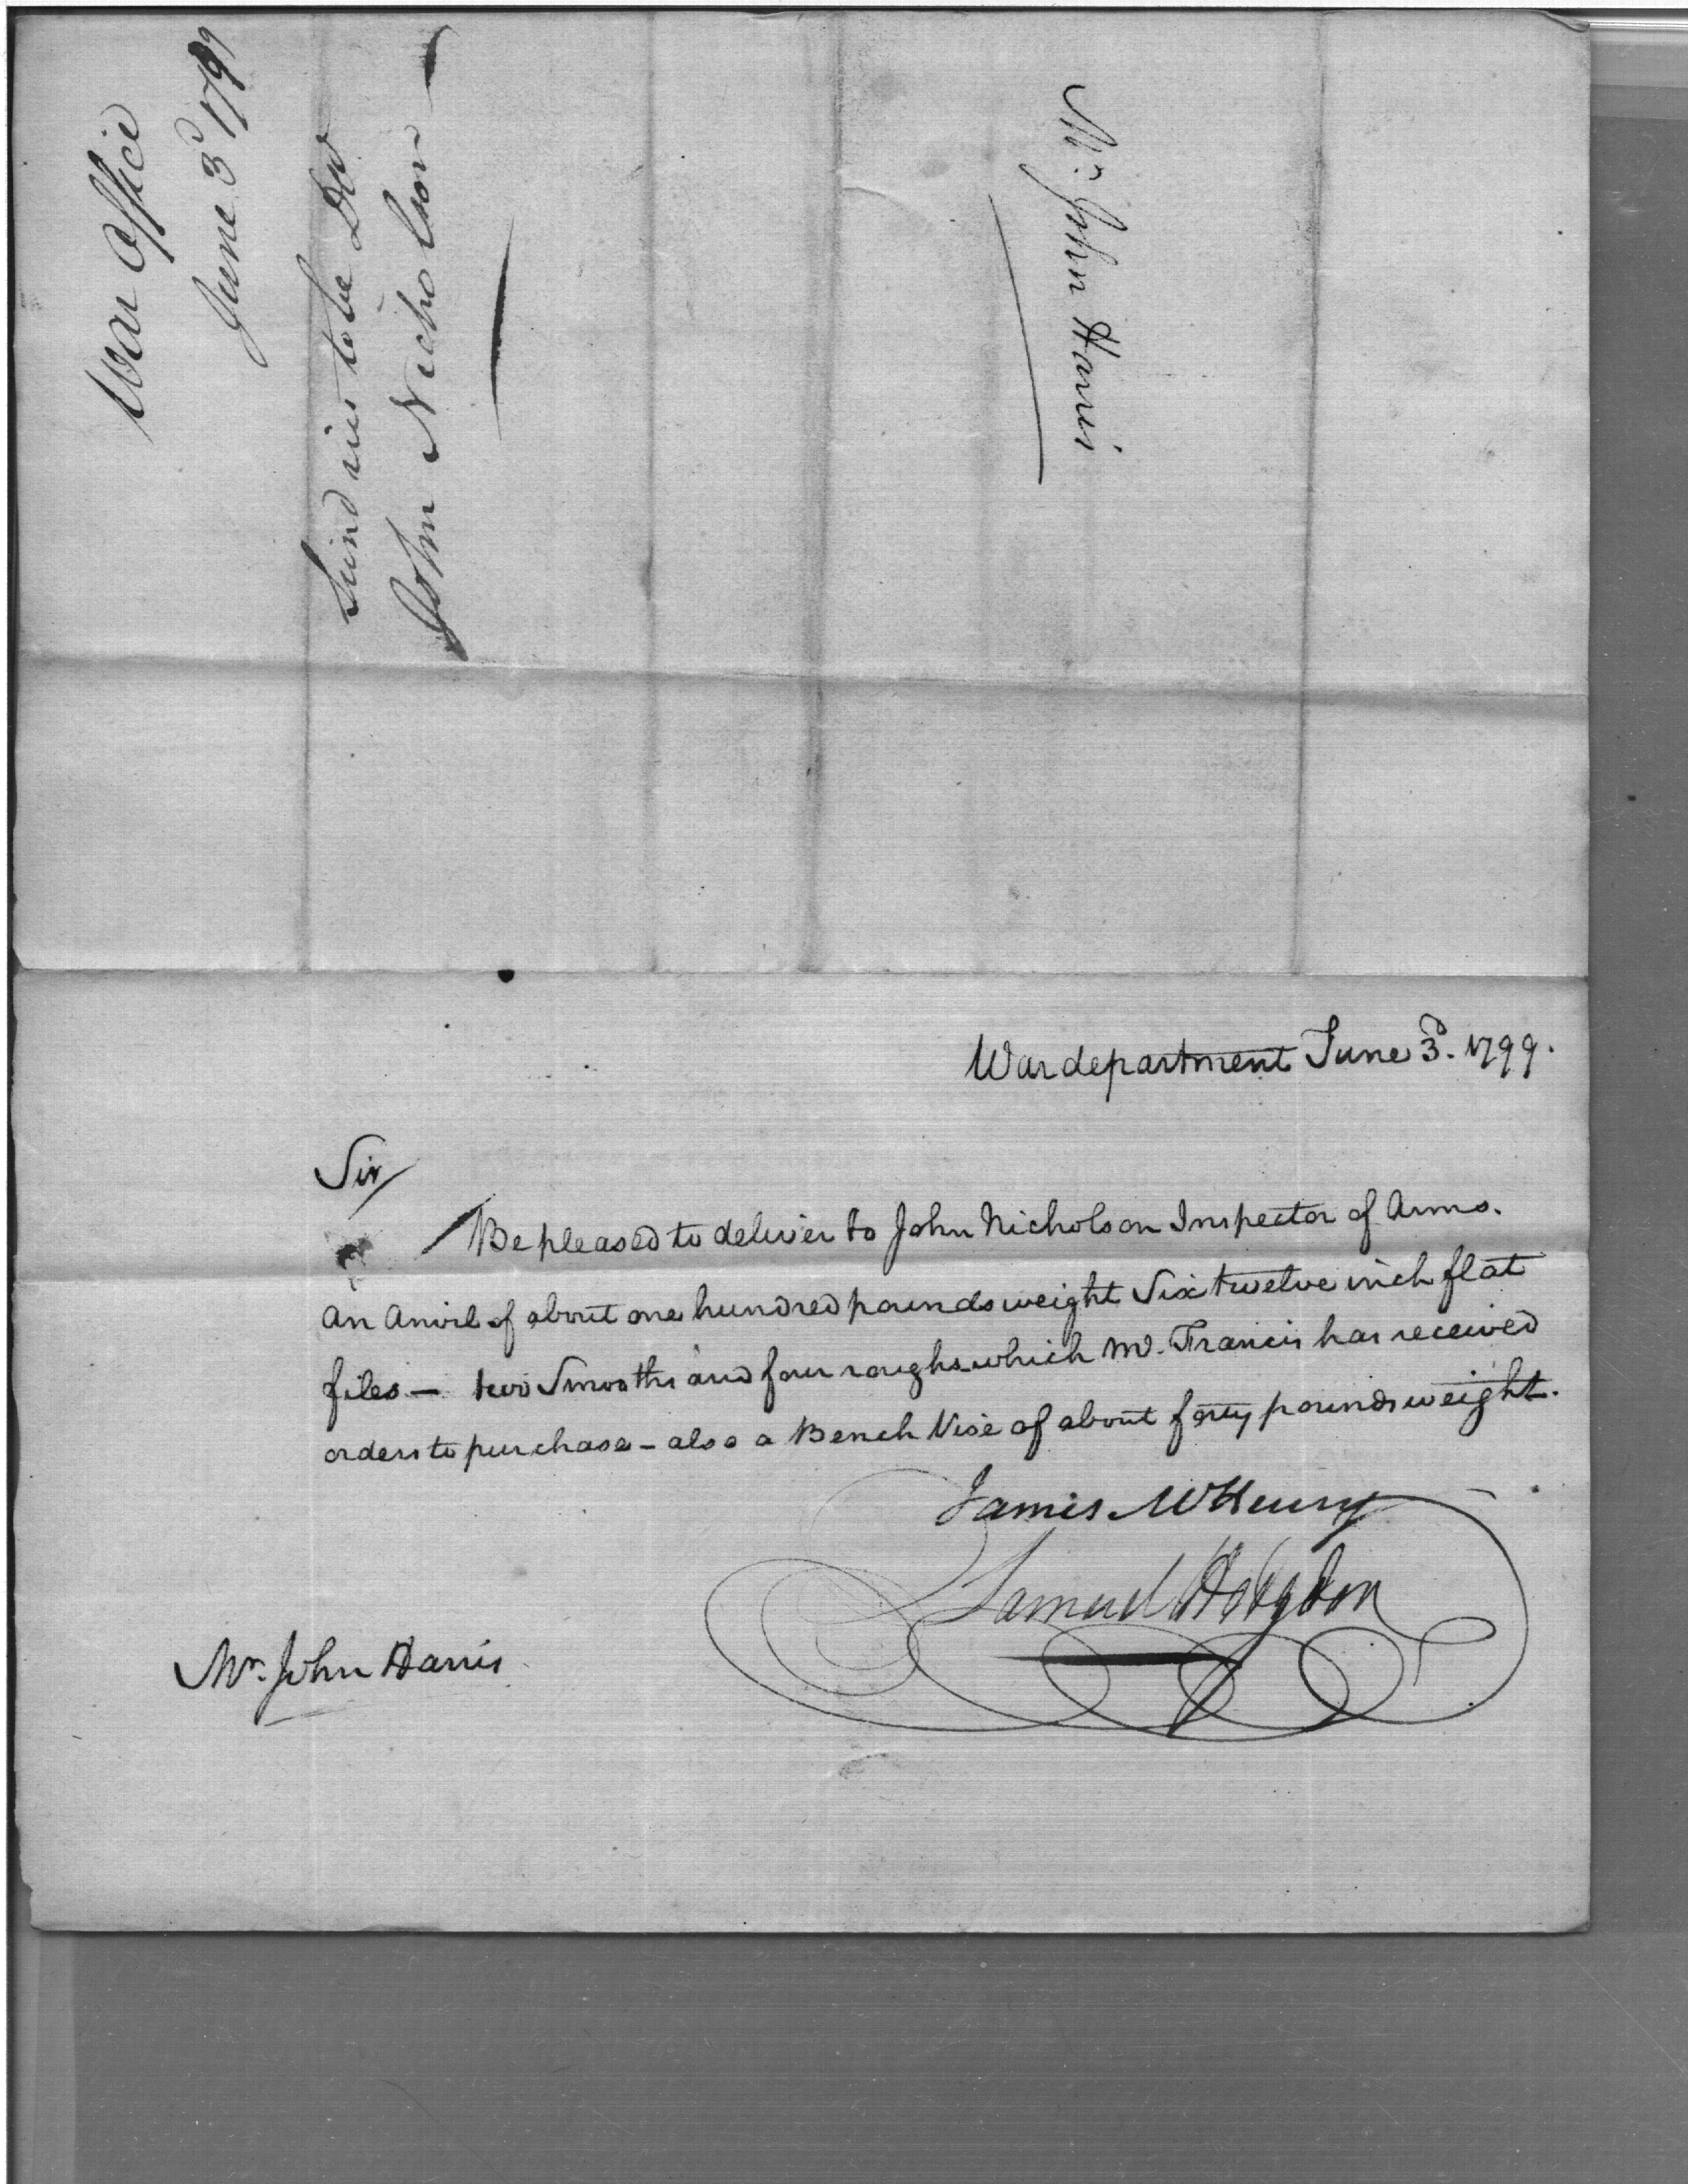 War Office
June 3d 1799
to be Dd
John Nicholson
Mr. John Harris
War department June 3d. 1799.
Sir/
Be pleased to deliver to John Nicholson Inspector of Arms.
An Anvil of about one hundred pounds weight Six twelve inch flat
files — two Smooths and four roughs which Mr. Francis has received
orders to purchase - also a Bench Vise of about forty pounds weight.
James McHenry
Samuel Hodgdon
Mr. John Harris